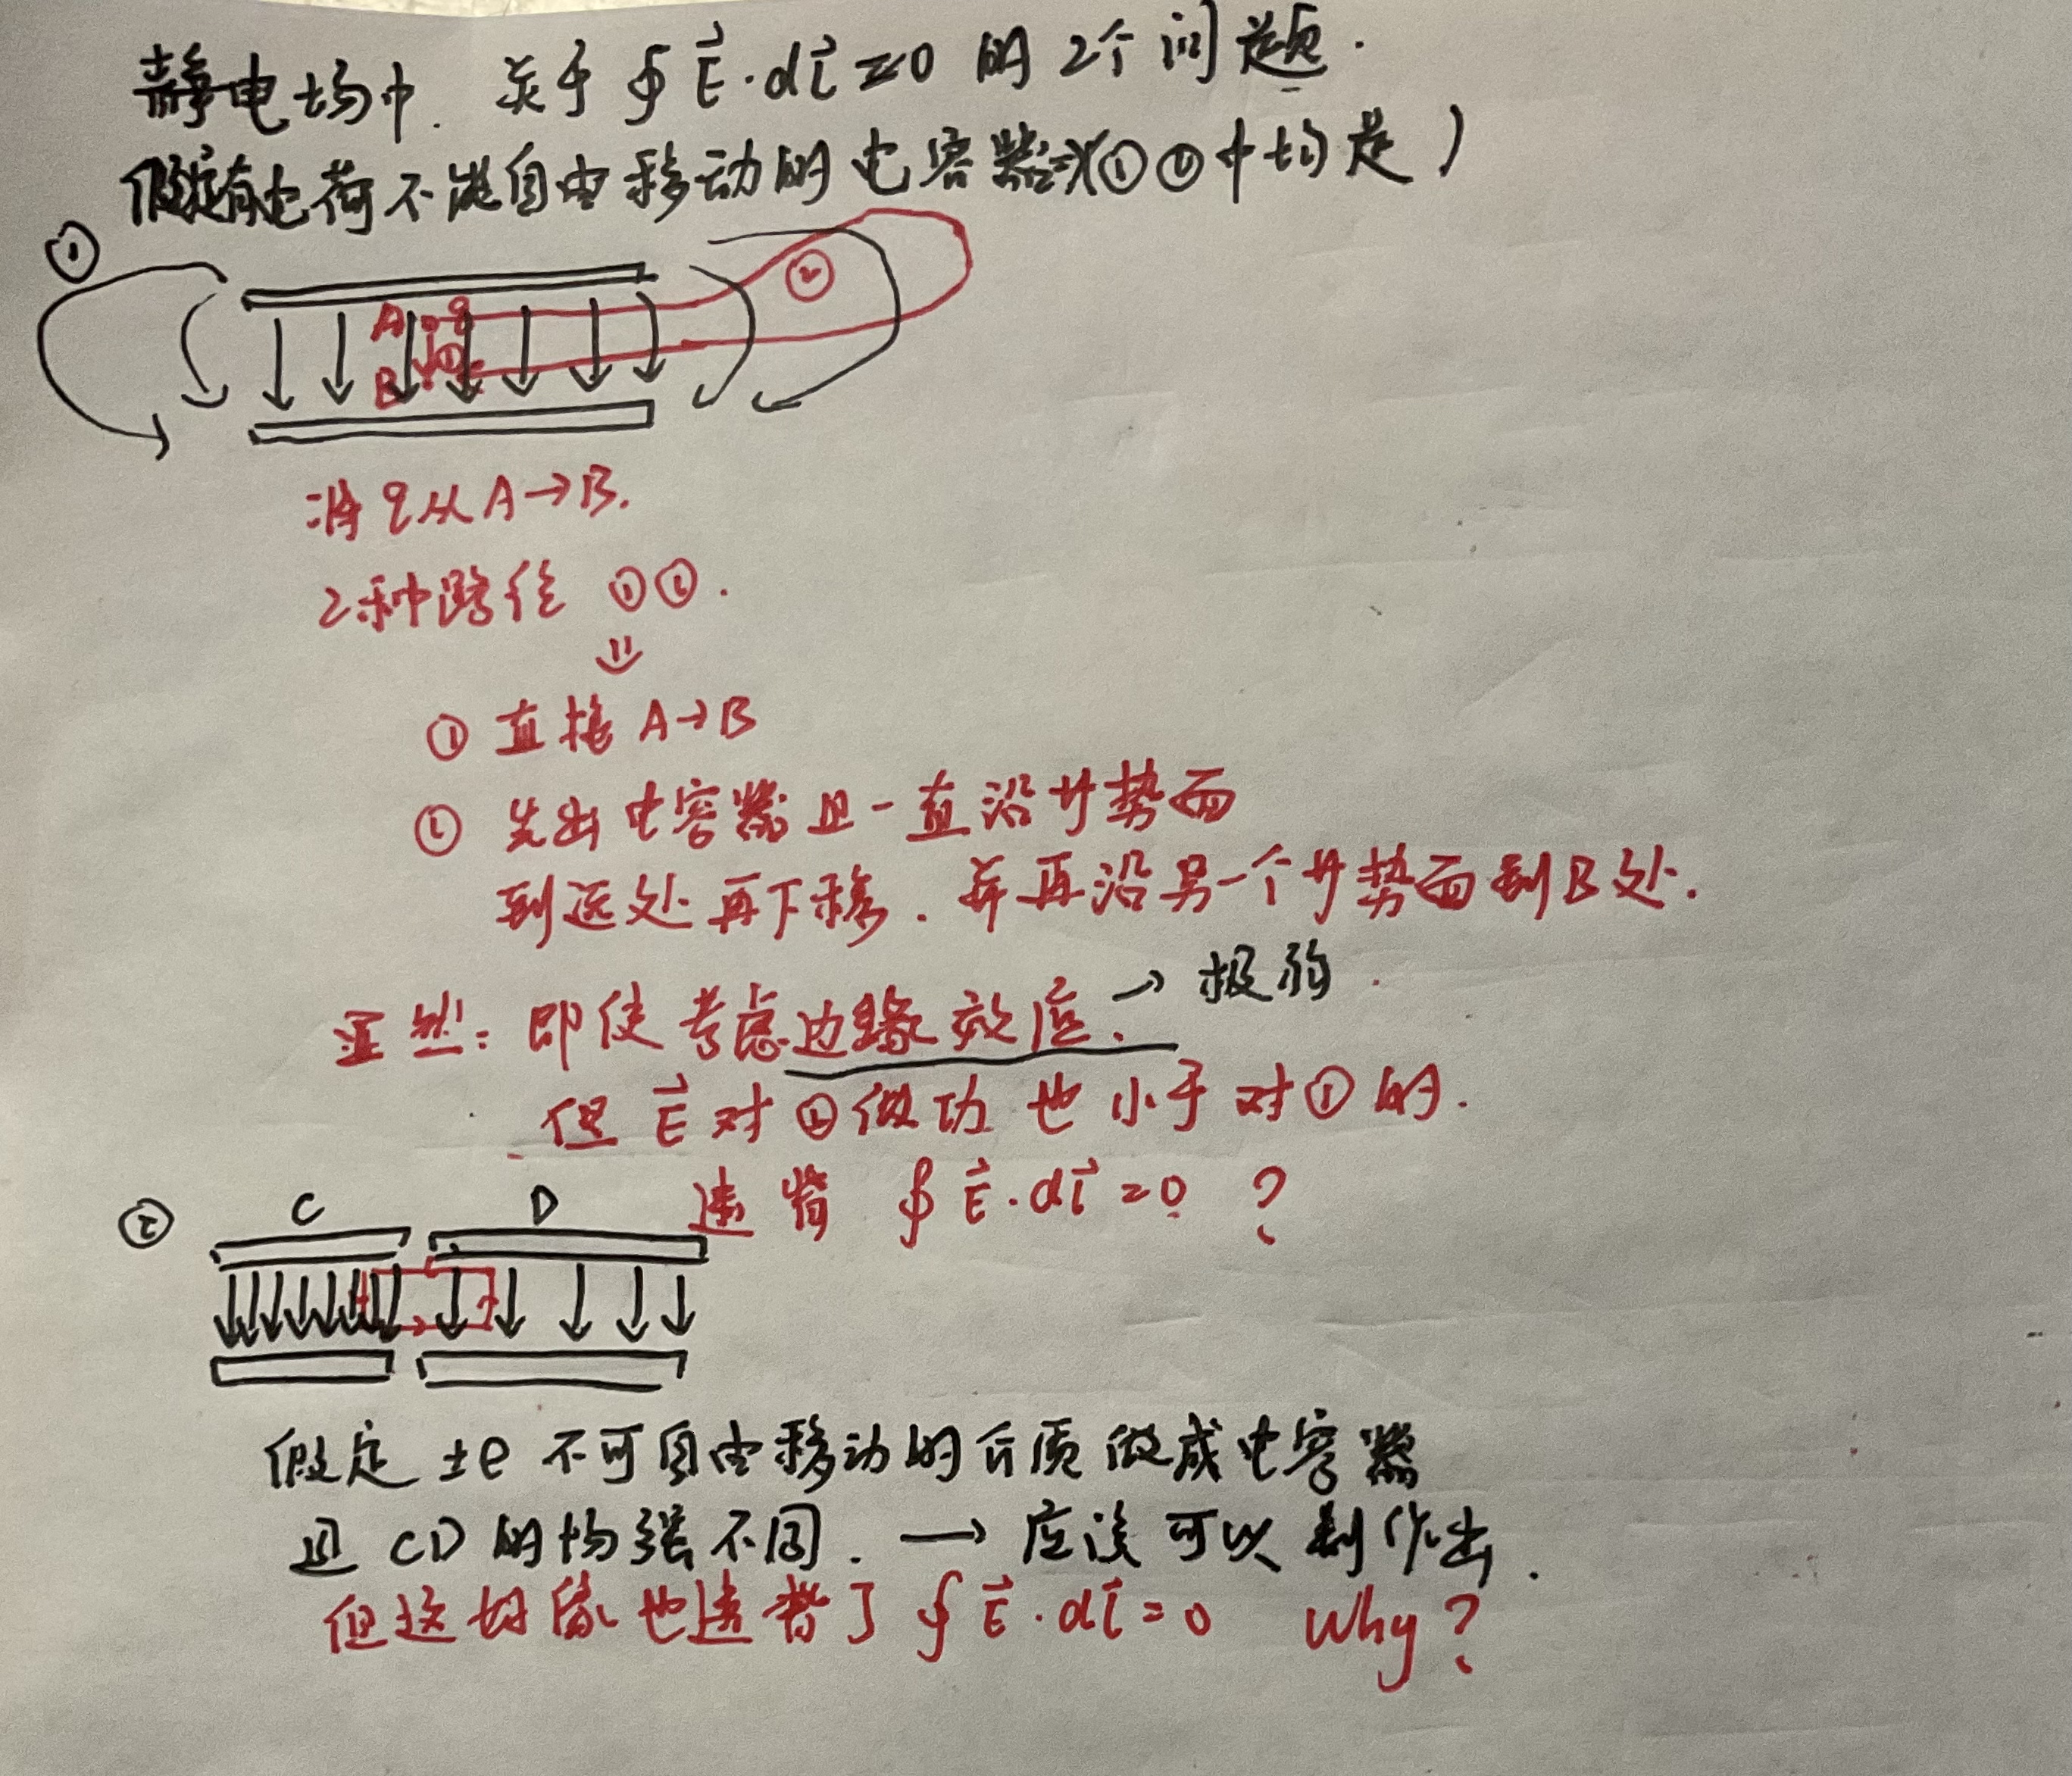 静电场中. 关于 ∮ E⃗·dl⃗ = 0 的 2个 问题.
假定有电荷不能自由移动的电容器 (①②中均是)
①
②
A q
①
B
将 q 从 A→B.
2种路径 ①②.
① 直接 A→B
② 先出电容器且一直沿等势面
到远处再下移. 并再沿另一个等势面到B处.
显然: 即使考虑边缘效应. → 极弱.
但 E⃗ 对②做功也小于对①的.
违背 ∮ E⃗·dl⃗ = 0 ?
② C D
假定 ±e 不可自由移动的介质做成电容器
且 CD 的场强不同. → 应该可以制作出.
但这好像也违背了 ∮ E⃗·dl⃗ = 0 Why?